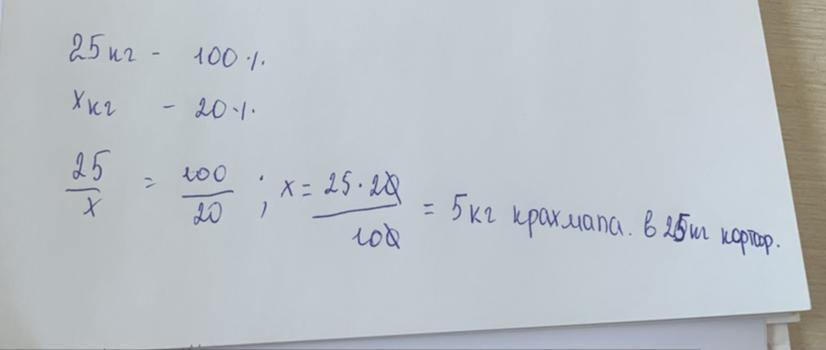 25кг - 100%
xкг - 20%
25/x = 100/20 ; x = 25·20/100 = 5кг крахмала. в 25кг картоф.